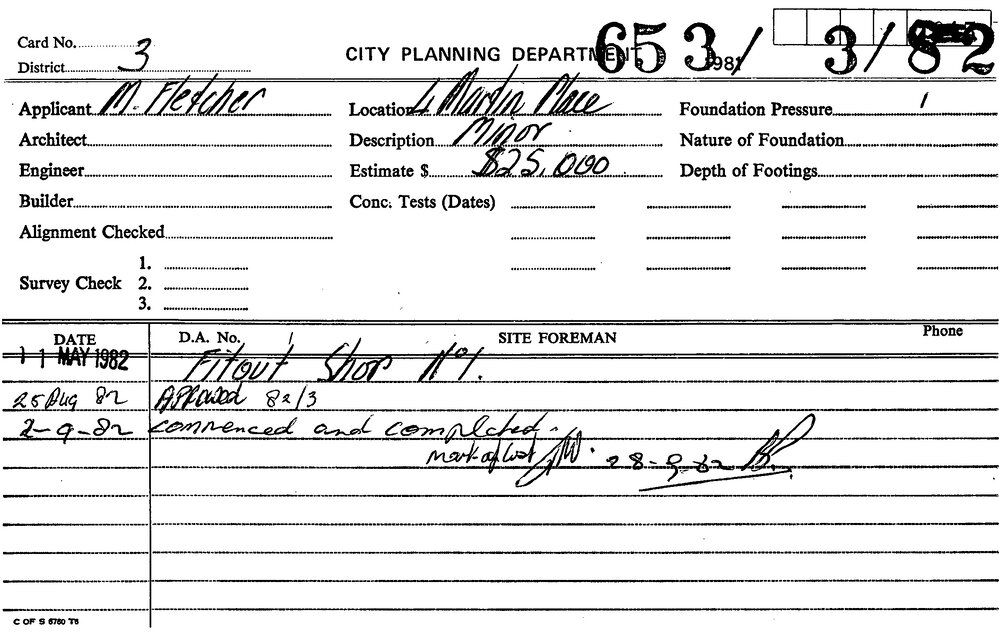 Card No. 3
District
CITY PLANNING DEPARTMENT
653/ 3/82
Applicant M. Fletcher
Location 4 Martin Place
Foundation Pressure
Architect
Description Minor
Nature of Foundation
Engineer
Estimate $ $25,000
Depth of Footings
Builder
Conc. Tests (Dates)
Alignment Checked
Survey Check
1.
2.
3.
DATE D.A. No. SITE FOREMAN Phone
11 MAY 1982 Fitout Shop No 1.
25 Aug 82 Approved 82/3
2-9-82 commenced and completed.
28-9-82
C OF S 6760 T6